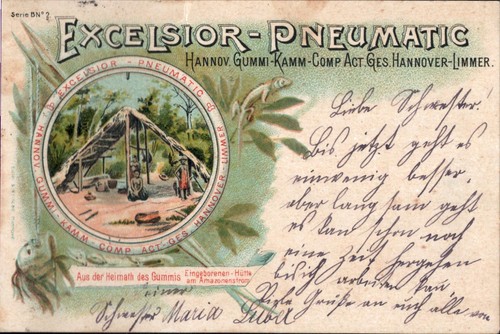 Serie BN° 2
EXCELSIOR-PNEUMATIC
HANNOV. GUMMI-KAMM-COMP. ACT. GES. HANNOVER-LIMMER.
EXCELSIOR - PNEUMATIC
HANNOV. GUMMI-KAMM-COMP. ACT-GES HANNOVER-LIMMER
Liebe Schwester.
Bis jetzt geht es
ein wenig besser,
aber langsam geht
es kan schon noch
eine Zeit hergehen
bis ich arbeiten kan.
Viele Grüße an euch alle von
einer
Schwester Maria
Aus der Heimath des Gummis
Eingeborenen-Hütte
am Amazonenstrom